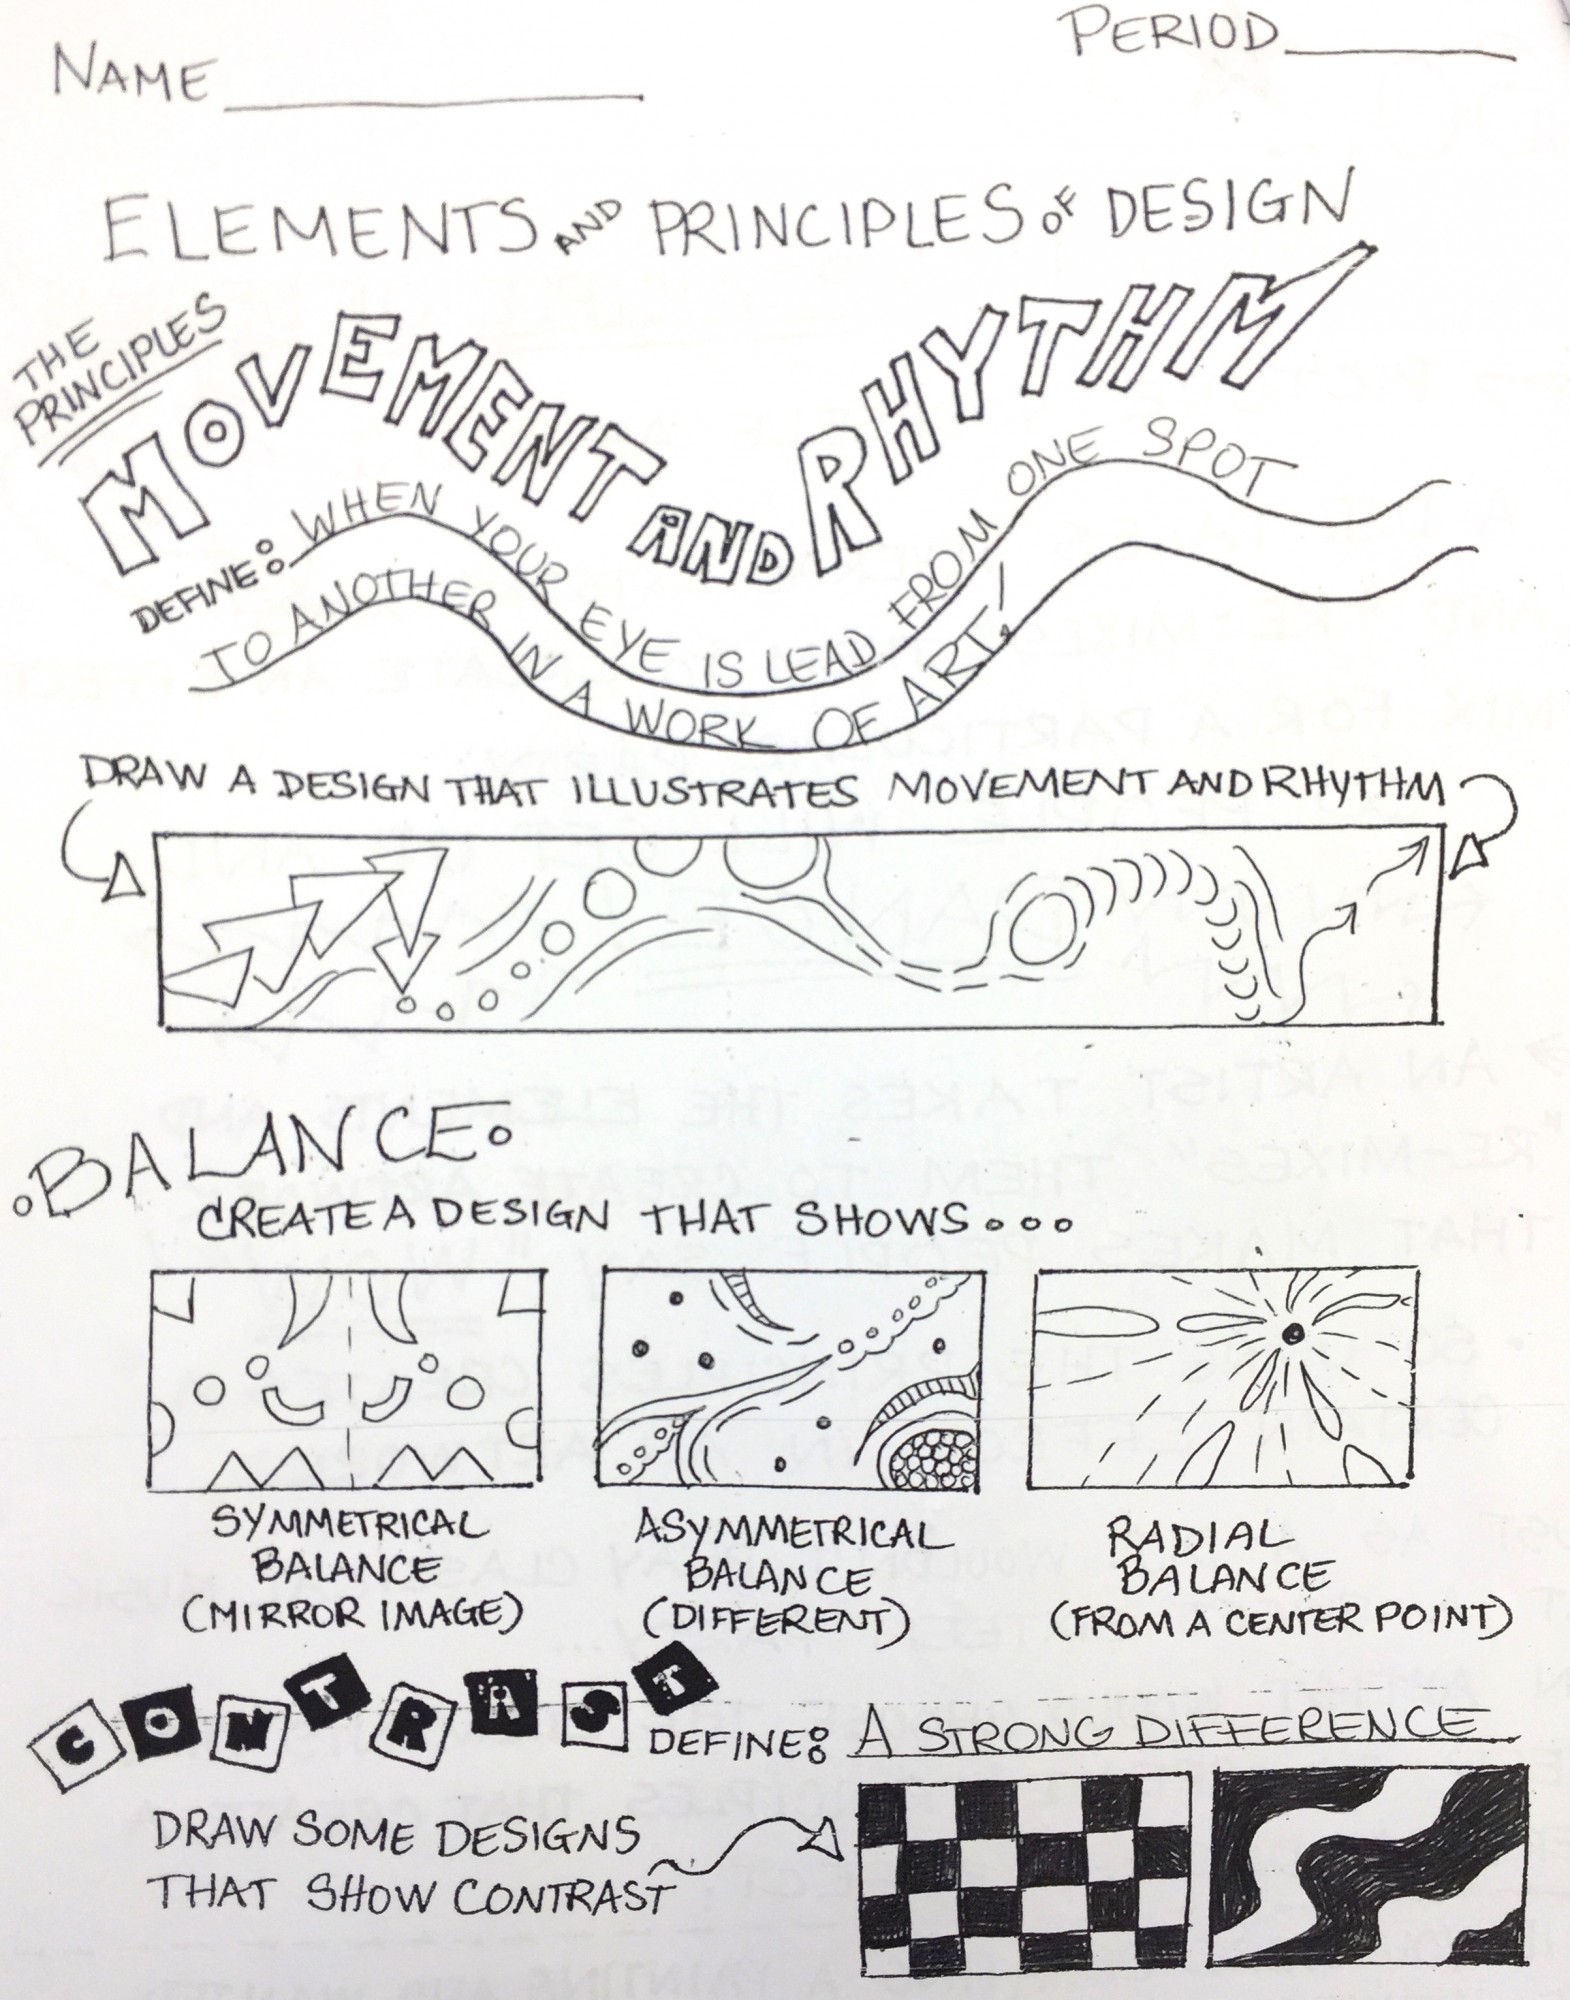 NAME
PERIOD
ELEMENTS AND PRINCIPLES OF DESIGN
THE
PRINCIPLES
MOVEMENT AND RHYTHM
DEFINE: WHEN YOUR EYE IS LEAD FROM ONE SPOT
TO ANOTHER IN A WORK OF ART!
DRAW A DESIGN THAT ILLUSTRATES MOVEMENT AND RHYTHM
BALANCE:
CREATE A DESIGN THAT SHOWS...
SYMMETRICAL
BALANCE
(MIRROR IMAGE)
ASYMMETRICAL
BALANCE
(DIFFERENT)
RADIAL
BALANCE
(FROM A CENTER POINT)
CONTRAST
DEFINE: A STRONG DIFFERENCE
DRAW SOME DESIGNS
THAT SHOW CONTRAST